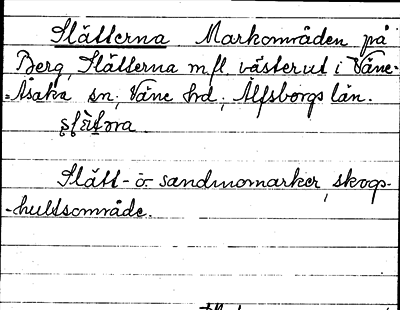 Slätterna Markområden på
Berg, Slätterna m.fl. västerut i Väne-
-Åsaka sn, Väne hd, Älfsborgs län.
Slätt- o. sandmomarker, skogs-
-hultsområde.